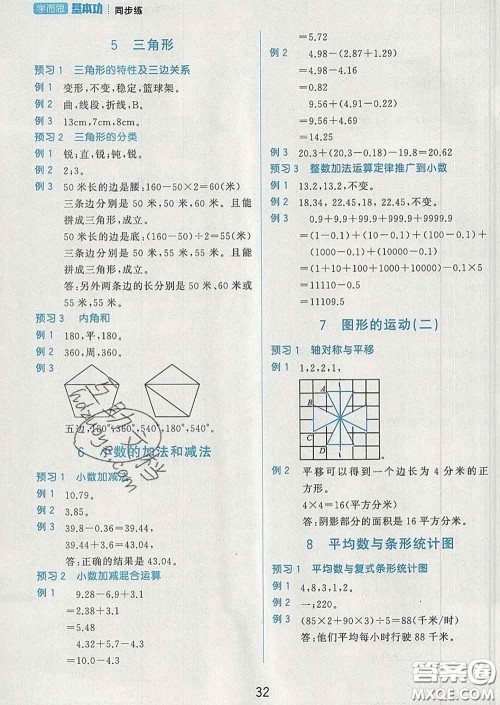 学而思 基本功 同步练
5 三角形
预习1 三角形的特性及三边关系
例1 变形,不变,稳定,篮球架。
例2 曲,线段,折线,B。
例3 13cm,7cm,8cm。
预习2 三角形的分类
例1 锐;直,锐;钝,锐。
例2 2;3。
例3 50米长的边是腰:160-50×2=60(米)
三条边分别是50米、50米、60米。且能
拼成三角形,成立。
50米长的边是底:(160-50)÷2=55(米)
三条边分别是50米、55米、55米。且能
拼成三角形,成立。
答:另外两条边的长分别是50米、60米或
55米、55米。
预习3 内角和
例1 180,平,180。
例2 360,周,360。
例3
五边,180°,360°,540°,180°,540°。
6 小数的加法和减法
预习1 小数加减法
例1 10.79。
例2 3.85。
例3 39.8-0.36=39.44
39.44+3.6=43.04
答:正确的结果是43.04。
预习2 小数加减混合运算
例1 9.28-6.9+3.1
=2.38+3.1
=5.48
4.32+5.7-4.3
=10.0-4.3
=5.72
例2 4.98-(1.87+0.29)
=4.98-2.16
=2.82
9.56+(4.85-0.16)
=9.56+4.69
=14.25
例3 20.3+(20.3-0.18)-19.8=20.62
预习3 整数加法运算定律推广到小数
例1 13.2,13.2,不变。
例2 18.34,22.45,18.45,不变。
例3 0.9+9.9+99.9+999.9+9999.9
=(1-0.1)+(10-0.1)+(100-0.1)+
(1000-0.1)+(10000-0.1)
=1+10+100+1000+10000-0.1×5
=11111-0.5
=11109.5
7 图形的运动(二)
预习1 轴对称与平移
例1 1,2,2,1,
A
B
C
例2 平移可以得到一个边长为4分米的正
方形。
4×4=16(平方分米)
答:阴影部分的面积是16平方分米。
8 平均数与条形统计图
预习1 平均数与复式条形统计图
例1 4,8,3,1,2。
例2 一;220。
例3 (85×2+90×3)÷5=88(千米/时)
答:他们平均每小时行驶88千米。
32
答案圈
MXQE.COM